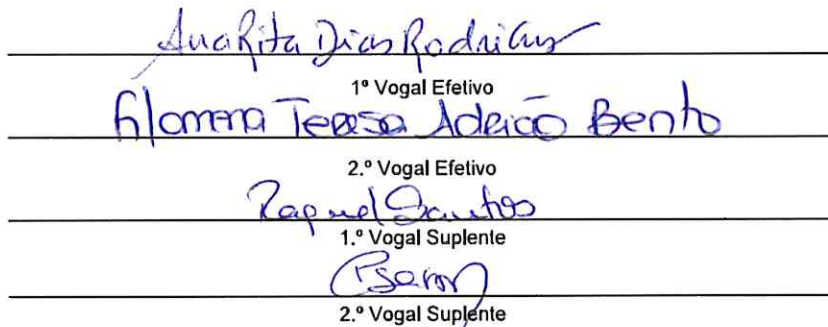 Ana Rita Dias Rodrigues
1º Vogal Efetivo
Filomena Teresa Adrião Bento
2.º Vogal Efetivo
Raquel Santos
1.º Vogal Suplente
2.º Vogal Suplente